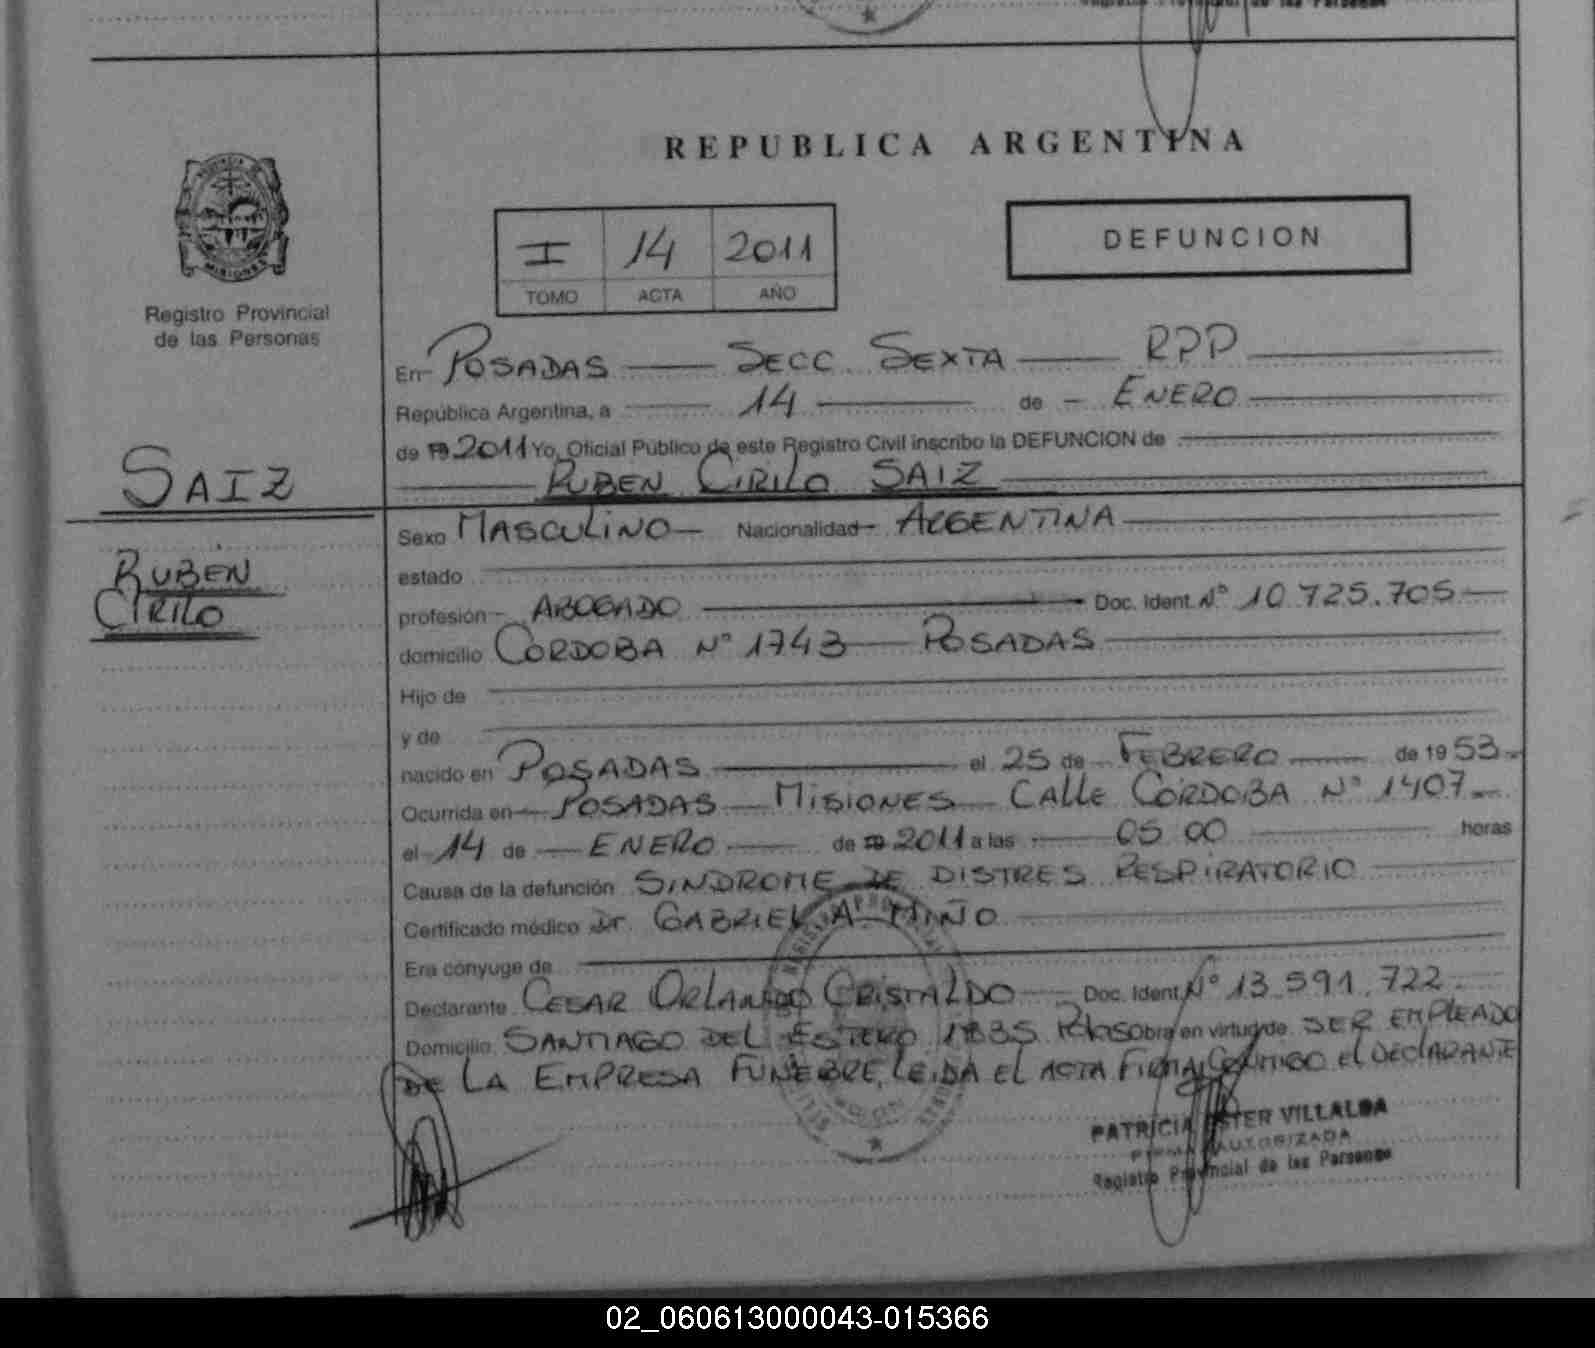 REPUBLICA ARGENTINA
PROVINCIA DE
MISIONES
Registro Provincial
de las Personas
I 14 2011
TOMO ACTA AÑO
DEFUNCION
SAIZ
RUBEN
CIRILO
En POSADAS SECC SEXTA RPP
República Argentina, a 14 de ENERO
de 19 2011 Yo, Oficial Público de este Registro Civil inscribo la DEFUNCION de
RUBEN CIRILO SAIZ
Sexo MASCULINO Nacionalidad ARGENTINA
estado
profesión ABOGADO Doc. Ident. N° 10.725.705
domicilio CORDOBA N° 1743 POSADAS
Hijo de
y de
nacido en POSADAS el 25 de FEBRERO de 19 53
Ocurrida en POSADAS MISIONES CALLE CORDOBA N° 1407
el 14 de ENERO de 19 2011 a las 05 00 horas
Causa de la defunción SINDROME DE DISTRES RESPIRATORIO
Certificado médico Dr. GABRIEL A. MIÑO
Era cónyuge de
Declarante CESAR ORLANDO CRISTALDO Doc. Ident. N° 13.591.722
Domicilio SANTIAGO DEL ESTERO 1835 Pdas obra en virtud de SER EMPLEADO
DE LA EMPRESA FUNEBRE, LEIDA EL ACTA FIRMA CONMIGO EL DECLARANTE
PATRICIA ESTER VILLALBA
FIRMA AUTORIZADA
Registro Provincial de las Personas
02_060613000043-015366